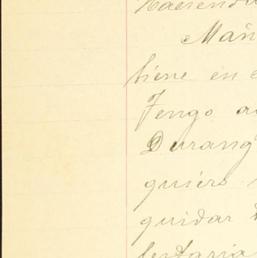 Mañ
tiene en e
Tengo a
Durang
quiero
quidar